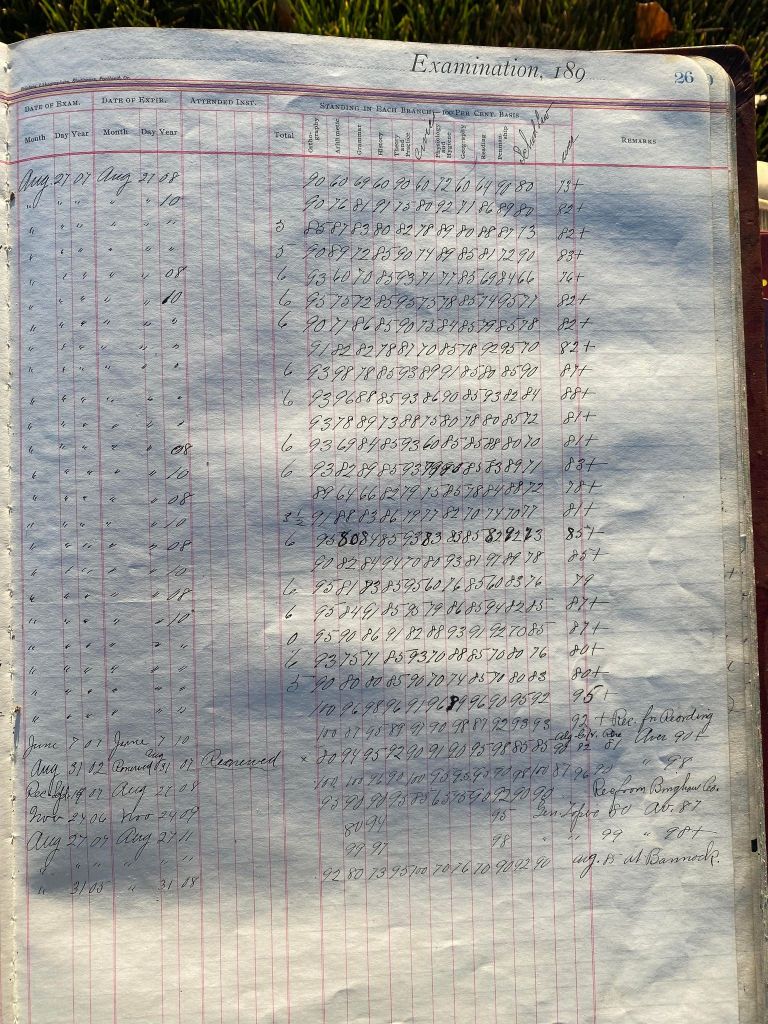 Examination, 189
26
DATE OF EXAM. DATE OF EXPIR. ATTENDED INST. STANDING IN EACH BRANCH—100 PER CENT. BASIS REMARKS
Month Day Year Month Day Year Total Orthography Arithmetic Grammar History Theory and Practice Physiology and Hygiene Geography Reading Penmanship
Aug 27 07 Aug 27 08 90 60 69 60 90 60 72 60 64 90 80 73+
" " " " " 10 90 76 81 91 75 80 92 71 86 89 80 82+
" " " " " " 5 85 87 83 80 82 78 89 80 88 87 73 82+
" " " " " " 5 90 89 72 85 90 74 89 85 81 72 90 83+
" " " " " 08 6 93 60 70 85 93 71 77 85 69 84 66 76+
" " " " " 10 6 95 75 72 85 95 75 78 85 74 95 77 82+
" " " " " " 6 90 71 86 85 90 75 84 85 79 85 78 82+
" " " " " " 91 82 82 78 87 70 85 78 92 95 70 82+
" " " " " " 6 93 98 78 85 93 89 91 85 80 85 90 87+
" " " " " " 6 93 96 88 85 93 86 90 85 93 82 84 88+
" " " " " " 93 78 89 73 88 75 80 78 80 85 72 81+
" " " " " 08 6 93 69 84 85 93 60 85 85 88 80 70 81+
" " " " " 10 6 93 82 89 85 93 85 83 89 71 83+
" " " " " 08 89 64 66 82 79 75 85 78 84 88 72 78+
" " " " " 10 3½ 91 88 83 86 79 77 82 70 74 70 77 81+
" " " " " 08 6 95 80 84 85 93 83 83 85 82 92 73 85+
" " " " " 10 90 82 84 94 70 80 93 81 91 89 78 85+
" " " " " 08 6 95 81 83 85 95 60 76 85 60 83 76 79
" " " " " 10 6 95 84 91 85 95 79 86 85 94 82 85 87+
" " " " " " 0 95 90 86 91 82 88 93 91 92 70 85 87+
" " " " " " 6 93 75 71 85 93 70 88 85 70 80 76 80+
" " " " " " 5 90 80 80 85 90 70 74 85 70 80 83 80+
" " " " " " 100 96 98 96 91 96 89 96 90 95 92 95+
June 7 07 June 7 10 100 87 95 89 91 90 98 87 92 93 93 92+ Rec. fr Recording
Aug 31 02 Renewed Aug 31 07 Renewed × 80 94 95 92 90 91 90 95 98 85 85 90 82 81 Aver 90+
Rec 07 Aug 27 08 " 98
Nov 24 06 Nov 24 09 95 90 90 95 85 65 75 90 92 90 90 Rec from Bingham Co.
Aug 27 07 Aug 27 11 80 94 95 80 Av. 87
" " " " " " 99 97 98 " " 99 " 98+
" 31 05 " 31 08 92 80 73 95 100 70 76 70 90 92 90 avg. B at Bannock.